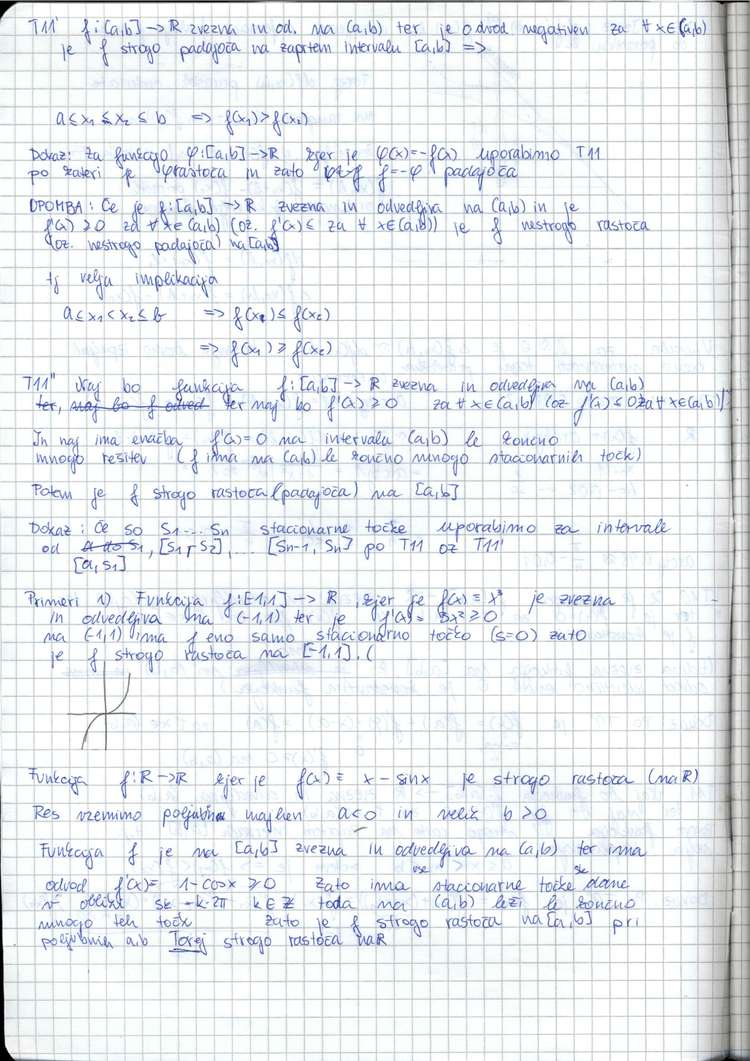 T11' f:[a,b] → R zvezna in od. na (a,b) ter je odvod negativen za ∀ x∈(a,b)
je f strogo padajoča na zaprtem intervalu [a,b] =>
a ≤ x₁ ≤ x₂ ≤ b => f(x₁) > f(x₂)
Dokaz: Za funkcijo φ:[a,b] → R kjer je φ(x) = -f(x) uporabimo T11
po kateri je φ rastoča in zato f = -φ padajoča
OPOMBA: Če je f:[a,b] → R zvezna in odvedljiva na (a,b) in je
f(x) ≥ 0 za ∀ x∈(a,b) (oz. f'(x) ≤ za ∀ x∈(a,b)) je f nestrogo rastoča
(oz. nestrogo padajoča) na [a,b]
tj velja implikacija
a ≤ x₁ < x₂ ≤ b => f(x₁) ≤ f(x₂)
=> f(x₁) ≥ f(x₂)
T11" Naj bo funkcija f:[a,b] → R zvezna in odvedljiva na (a,b)
ter, naj bo f odved ter naj bo f'(x) ≥ 0 za ∀ x∈(a,b) (oz f'(x) ≤ 0 za ∀ x∈(a,b))
In naj ima enačba f'(x) = 0 na intervalu (a,b) le končno
mnogo rešitev (f ima na (a,b) le končno mnogo stacionarnih točk)
Potem je f strogo rastoča (padajoča) na [a,b]
Dokaz: Če so S₁ ... Sn stacionarne točke uporabimo za intervale
od a do s₁, [S₁, S₂], ... [Sn-1, Sn] po T11 oz T11'
[a, s₁]
Primeri 1) Funkcija f:[-1,1] → R, kjer je f(x) = x³ je zvezna
in odvedljiva na (-1,1) ter je f'(x) = 3x² ≥ 0
na (-1,1) ima f eno samo stacionarno točko (s=0) zato
je f strogo rastoča na [-1,1]. (
Funkcija f:R → R kjer je f(x) = x - sinx je strogo rastoča (na R)
Res vzemimo poljubno majhen a<0 in velik b>0
Funkcija f je na [a,b] zvezna in odvedljiva na (a,b) ter ima
odvod f'(x) = 1-cosx ≥ 0 zato ima vse stacionarne točke sk dane
v obliki sk = k·2π k∈Z toda na (a,b) leži le končno
mnogo teh točk zato je f strogo rastoča na [a,b] pri
poljubnih a,b Torej strogo rastoča na R